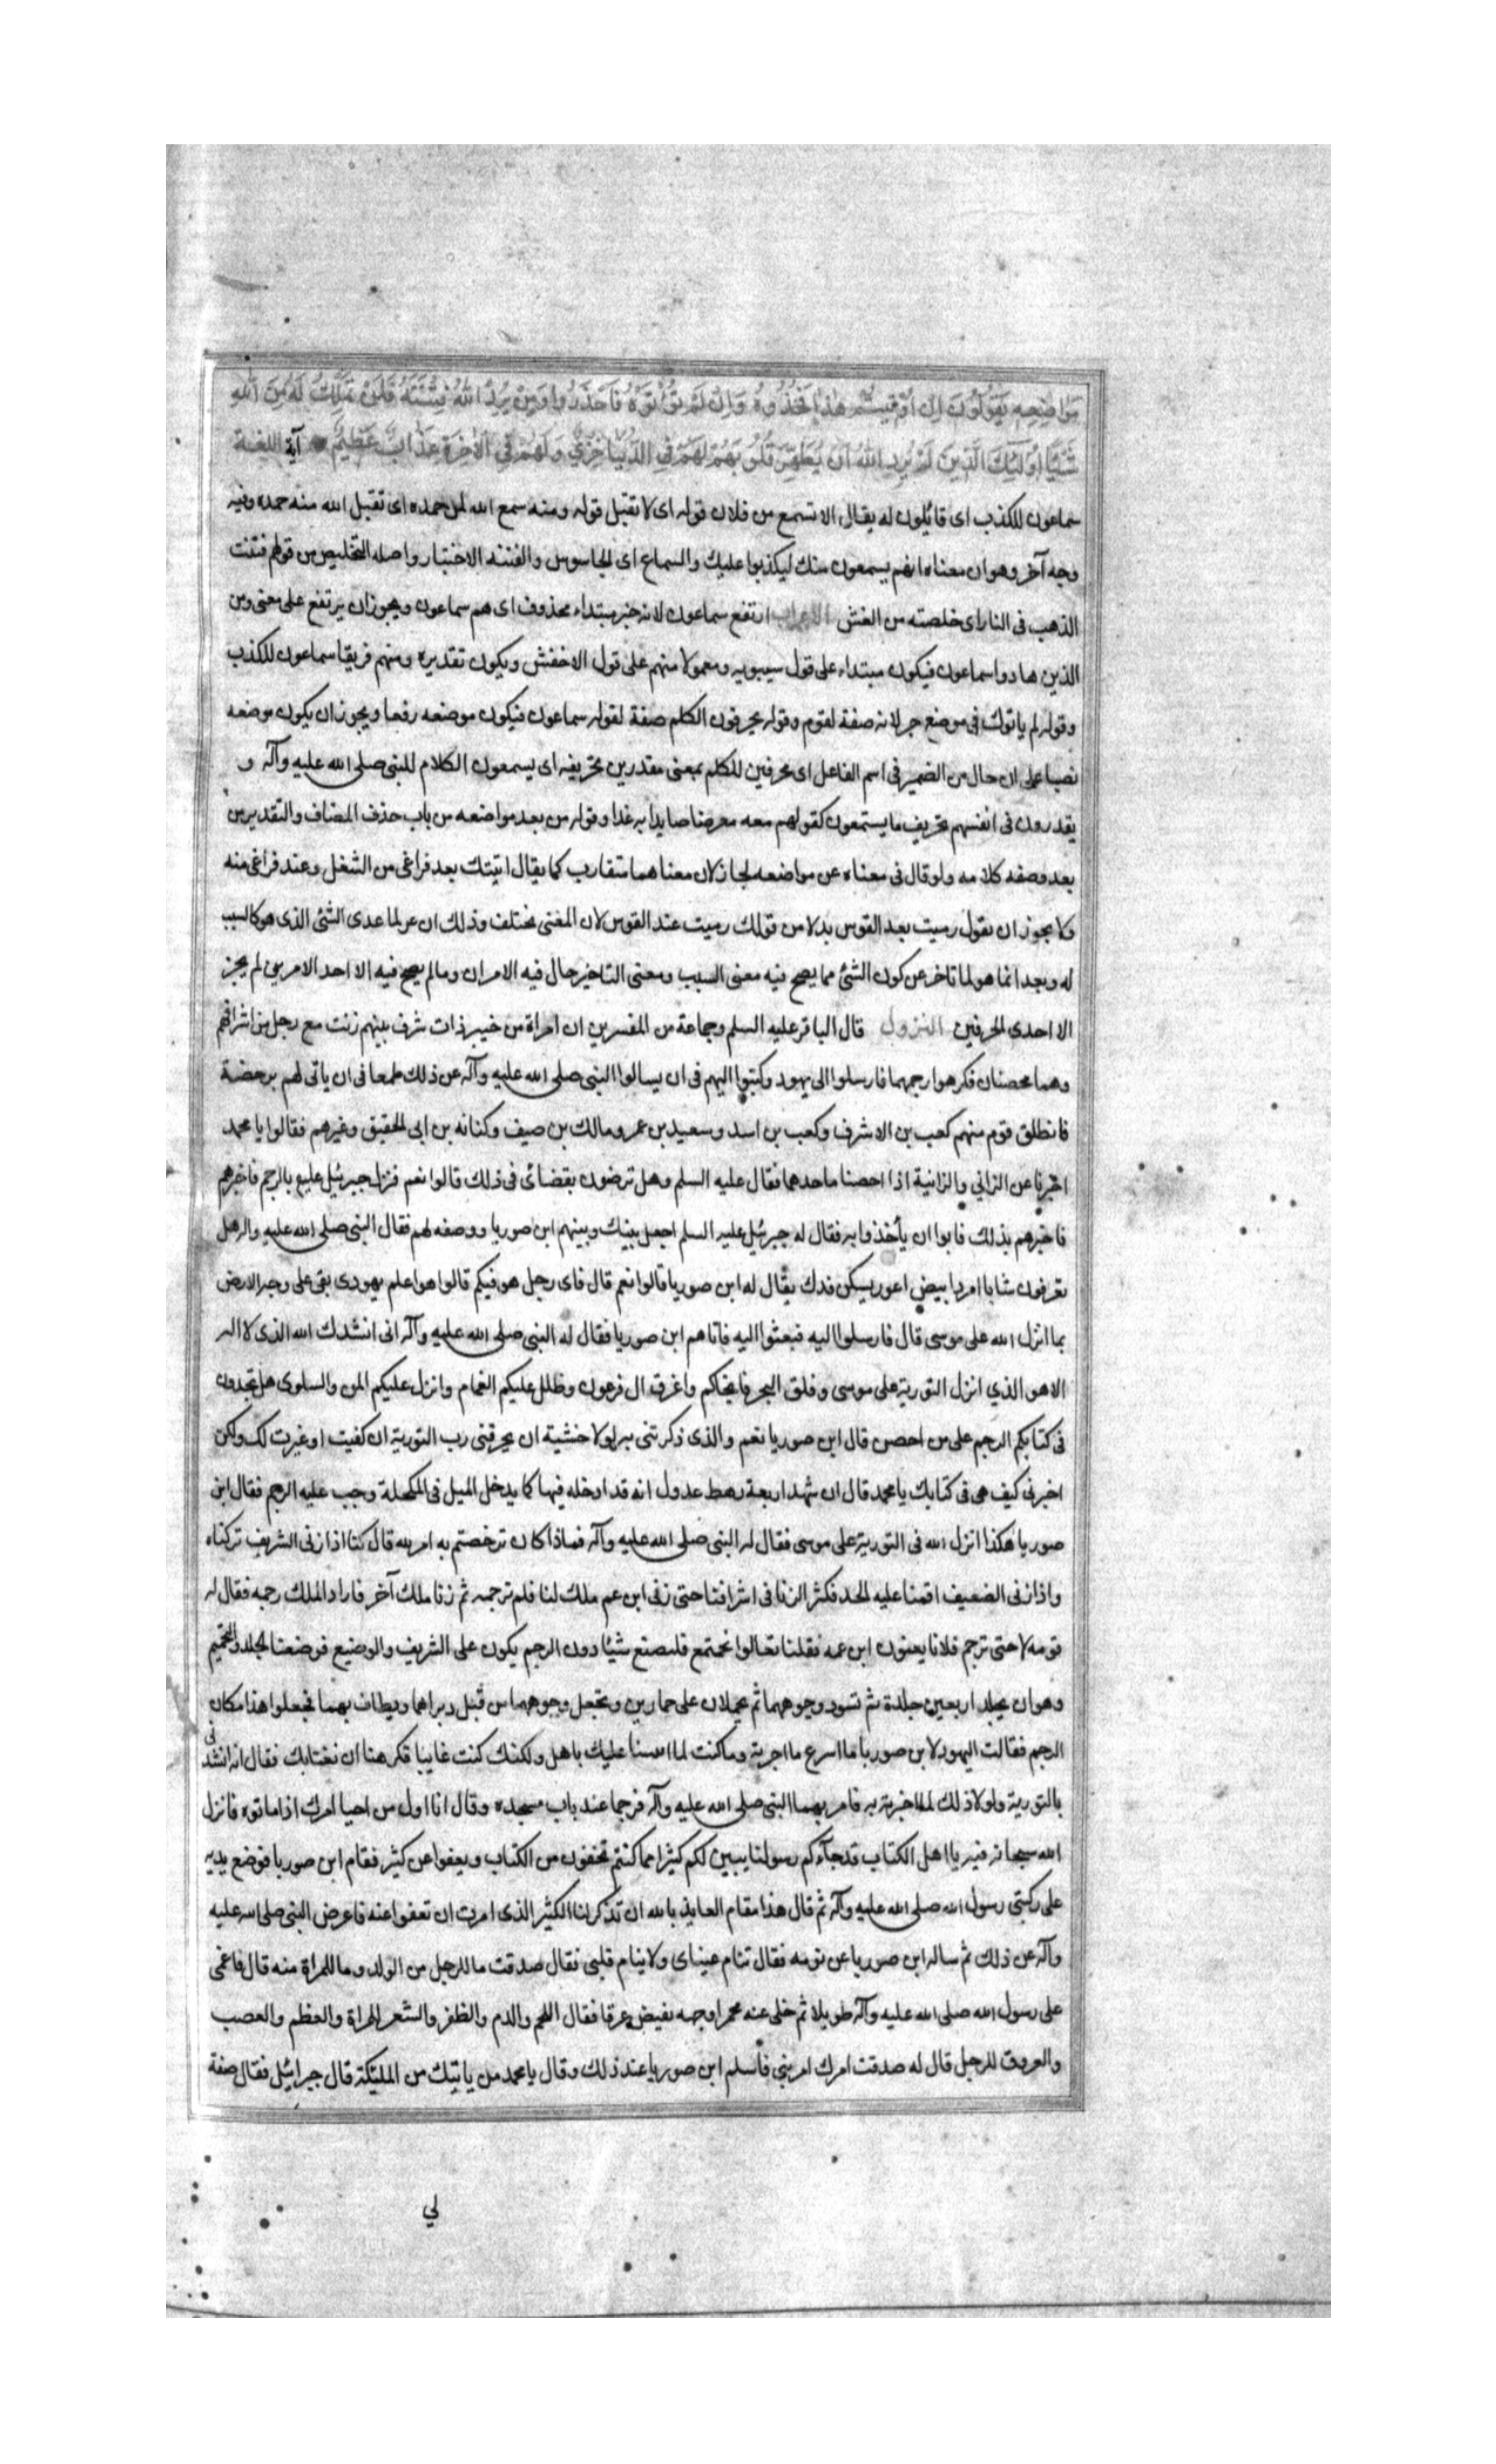 مَوَاضِعِهِ يَقُولُونَ اِنْ اُوْتِيتُمْ هٰذَا فَخُذُوهُ وَاِنْ لَمْ تُؤْتَوْهُ فَاحْذَرُوا وَمَنْ يُرِدِ اللهُ فِتْنَتَهُ فَلَنْ تَمْلِكَ لَهُ مِنَ اللهِ
شَيْئًا اُولٰئِكَ الَّذِينَ لَمْ يُرِدِ اللهُ اَنْ يُطَهِّرَ قُلُوبَهُمْ لَهُمْ فِي الدُّنْيَا خِزْيٌ وَلَهُمْ فِي الْاٰخِرَةِ عَذَابٌ عَظِيمٌ آية اللغة
سماعون للكذب اى قائلون له يقال الا تسمع من فلان قوله اى لا تقبل قوله ومنه سمع الله لمن حمده اى تقبل الله منه حمده وفيه
وجه آخر وهو ان معناه انهم يسمعون منك ليكذبوا عليك والسماع اى الجاسوس والفتنه الاختبار واصله التخليص من قولهم فتنت
الذهب فى النار اى خلصته من الغش الاعراب ارتفع سماعون لانه خبر مبتداء محذوف اى هم سماعون ويجوز ان يرتفع على معنى ومن
الذين هادوا سماعون فيكون مبتداء على قول سيبويه ومعمولا منهم على قول الاخفش ويكون تقديره ومنهم فريقا سماعون للكذب
وقوله لم ياتوك فى موضع جر لانه صفة لقوم وقوله يحرفون الكلم صفة لقوله سماعون فيكون موضعه رفعا ويجوز ان يكون موضعه
نصبا على ان حال من الضمير فى اسم الفاعل اى محرفين للكلم بمعنى مقدرين تحريفه اى يسمعون الكلام للنبى صلى الله عليه وآله و
يقدرون فى انفسهم تحريف ما يستمعون كقولهم معه صايدا به غدا وقوله من بعد مواضعه من باب حذف المضاف والتقدير من
بعد وصفه كلامه ولو قال فى معناه عن مواضعه لجاز لان معناهما متقارب كما يقال اتيتك بعد فراغى من الشغل وعند فراغى منه
ولا يجوز ان تقول رميت بعد القوس بدلا من قولك رميت عند القوس لان المعنى مختلف وذلك ان عن لما عدى الشئ الذى هو كالسبب
له وبعد انما هو لما تاخر عن كون الشئ مما يصح فيه معنى السبب ومعنى التاخير حال فيه الامران وما لم يصح فيه الا احد الامرين لم يجز
الا احدى الحرفين النزول قال الباقر عليه السلم وجماعة من المفسرين ان امراة من خيبر ذات شرف بينهم زنت مع رجل من اشرافهم
وهما محصنان فكرهوا رجمهما فارسلوا الى يهود وكتبوا اليهم فى ان يسالوا النبى صلى الله عليه وآله عن ذلك طمعا فى ان ياتى لهم برخصة
فانطلق قوم منهم كعب بن الاشرف وكعب بن اسد وسعيد بن عمرو مالك بن صيف وكنانه بن ابى الحقيق وغيرهم فقالوا يا محمد
اخبرنا عن الزاني والزانية اذا احصنا ما حدهما فقال عليه السلم وهل ترضون بقضائى فى ذلك قالوا نعم فنزل جبرئيل عليع بالرجم فاخبرهم
فاخبرهم بذلك فابوا ان يأخذوا به فقال له جبرئيل عليه السلم اجعل بينك وبينهم ابن صوريا ووصفه لهم فقال النبى صلى الله عليه واله هل
تعرفون شابا امرد ابيض اعور يسكن فدك يقال له ابن صوريا قالوا نعم قال فاى رجل هو فيكم قالوا هو اعلم يهودى بقى على وجه الارض
بما انزل الله على موسى قال فارسلوا اليه فبعثوا اليه فاتاهم ابن صوريا فقال له النبى صلى الله عليه وآله انى انشدك الله الذى لا اله
الا هو الذي انزل التورية على موسى وفلق البحر فانجاكم واغرق ال فرعون وظلل عليكم الغمام وانزل عليكم المن والسلوى هل تجدون
فى كتابكم الرجم على من احصن قال ابن صوريا نعم والذى ذكرتنى به لولا خشية ان يحرقنى رب التورية ان كفيت او غيرت لك ولكن
اخبرنى كيف هى فى كتابك يا محمد قال ان شهد اربعة رهط عدول انه قد ادخله فيها كما يدخل الميل فى المكحلة وجب عليه الرجم فقال ابن
صوريا هكذا انزل الله فى التورية على موسى فقال له النبى صلى الله عليه وآله فماذا كان ترخصتم به امر الله قال كنا اذا زنى الشريف تركناه
واذا زنى الضعيف اقمنا عليه الحد فكثر الزنا فى اشرافنا حتى زنى ابن عم ملك لنا فلم ترجمه ثم زنا ملك آخر فاراد الملك رجمه فقال له
قومه لا حتى ترجم فلانا يعنون ابن عمه فقلنا تعالوا نجتمع فلنصنع شيئا دون الرجم يكون على الشريف والوضيع فوضعنا الجلد والتحميم
وهو ان يجلد اربعين جلدة ثم تسود وجوههما ثم يحملان على حمارين وتجعل وجوههما من قبل دبر الحمار ويطاف بهما فجعلوا هذا مكان
الرجم فقالت اليهود لابن صوريا ما اسرع ما اخبرته وما كنت لما اثنينا عليك باهل ولكنك كنت غايبا فكرهنا ان نغتابك فقال انه انشدنى
بالتورية ولولا ذلك لما اخبرته به فامر بهما النبى صلى الله عليه وآله فرجما عند باب مسجده وقال انا اول من احيا امرك اذا ماتوه فانزل
الله سبحانه فيه يا اهل الكتاب قد جآءكم رسولنا يبين لكم كثيرا مما كنتم تخفون من الكتاب ويعفوا عن كثير فقام ابن صوريا فوضع يديه
على ركبتى رسول الله صلى الله عليه وآله ثم قال هذا مقام العايذ بالله ان تذكر لنا الكثير الذى امرت ان تعفوا عنه فاعرض النبى صلى الله عليه
وآله عن ذلك ثم ساله ابن صوريا عن نومه فقال تنام عيناى ولا ينام قلبى فقال صدقت ما للرجل من الولد وما للمراة منه قال فاغمى
على رسول الله صلى الله عليه وآله طويلا ثم خلى عنه محمرا وجهه يفيض عرقا فقال اللحم والدم والظفر والشعر للمراة والعظم والعصب
والعروق للرجل قال له صدقت امرك امر نبى فأسلم ابن صوريا عند ذلك وقال يا محمد من ياتيك من المليكة قال جبرائيل فقال صفة
لي